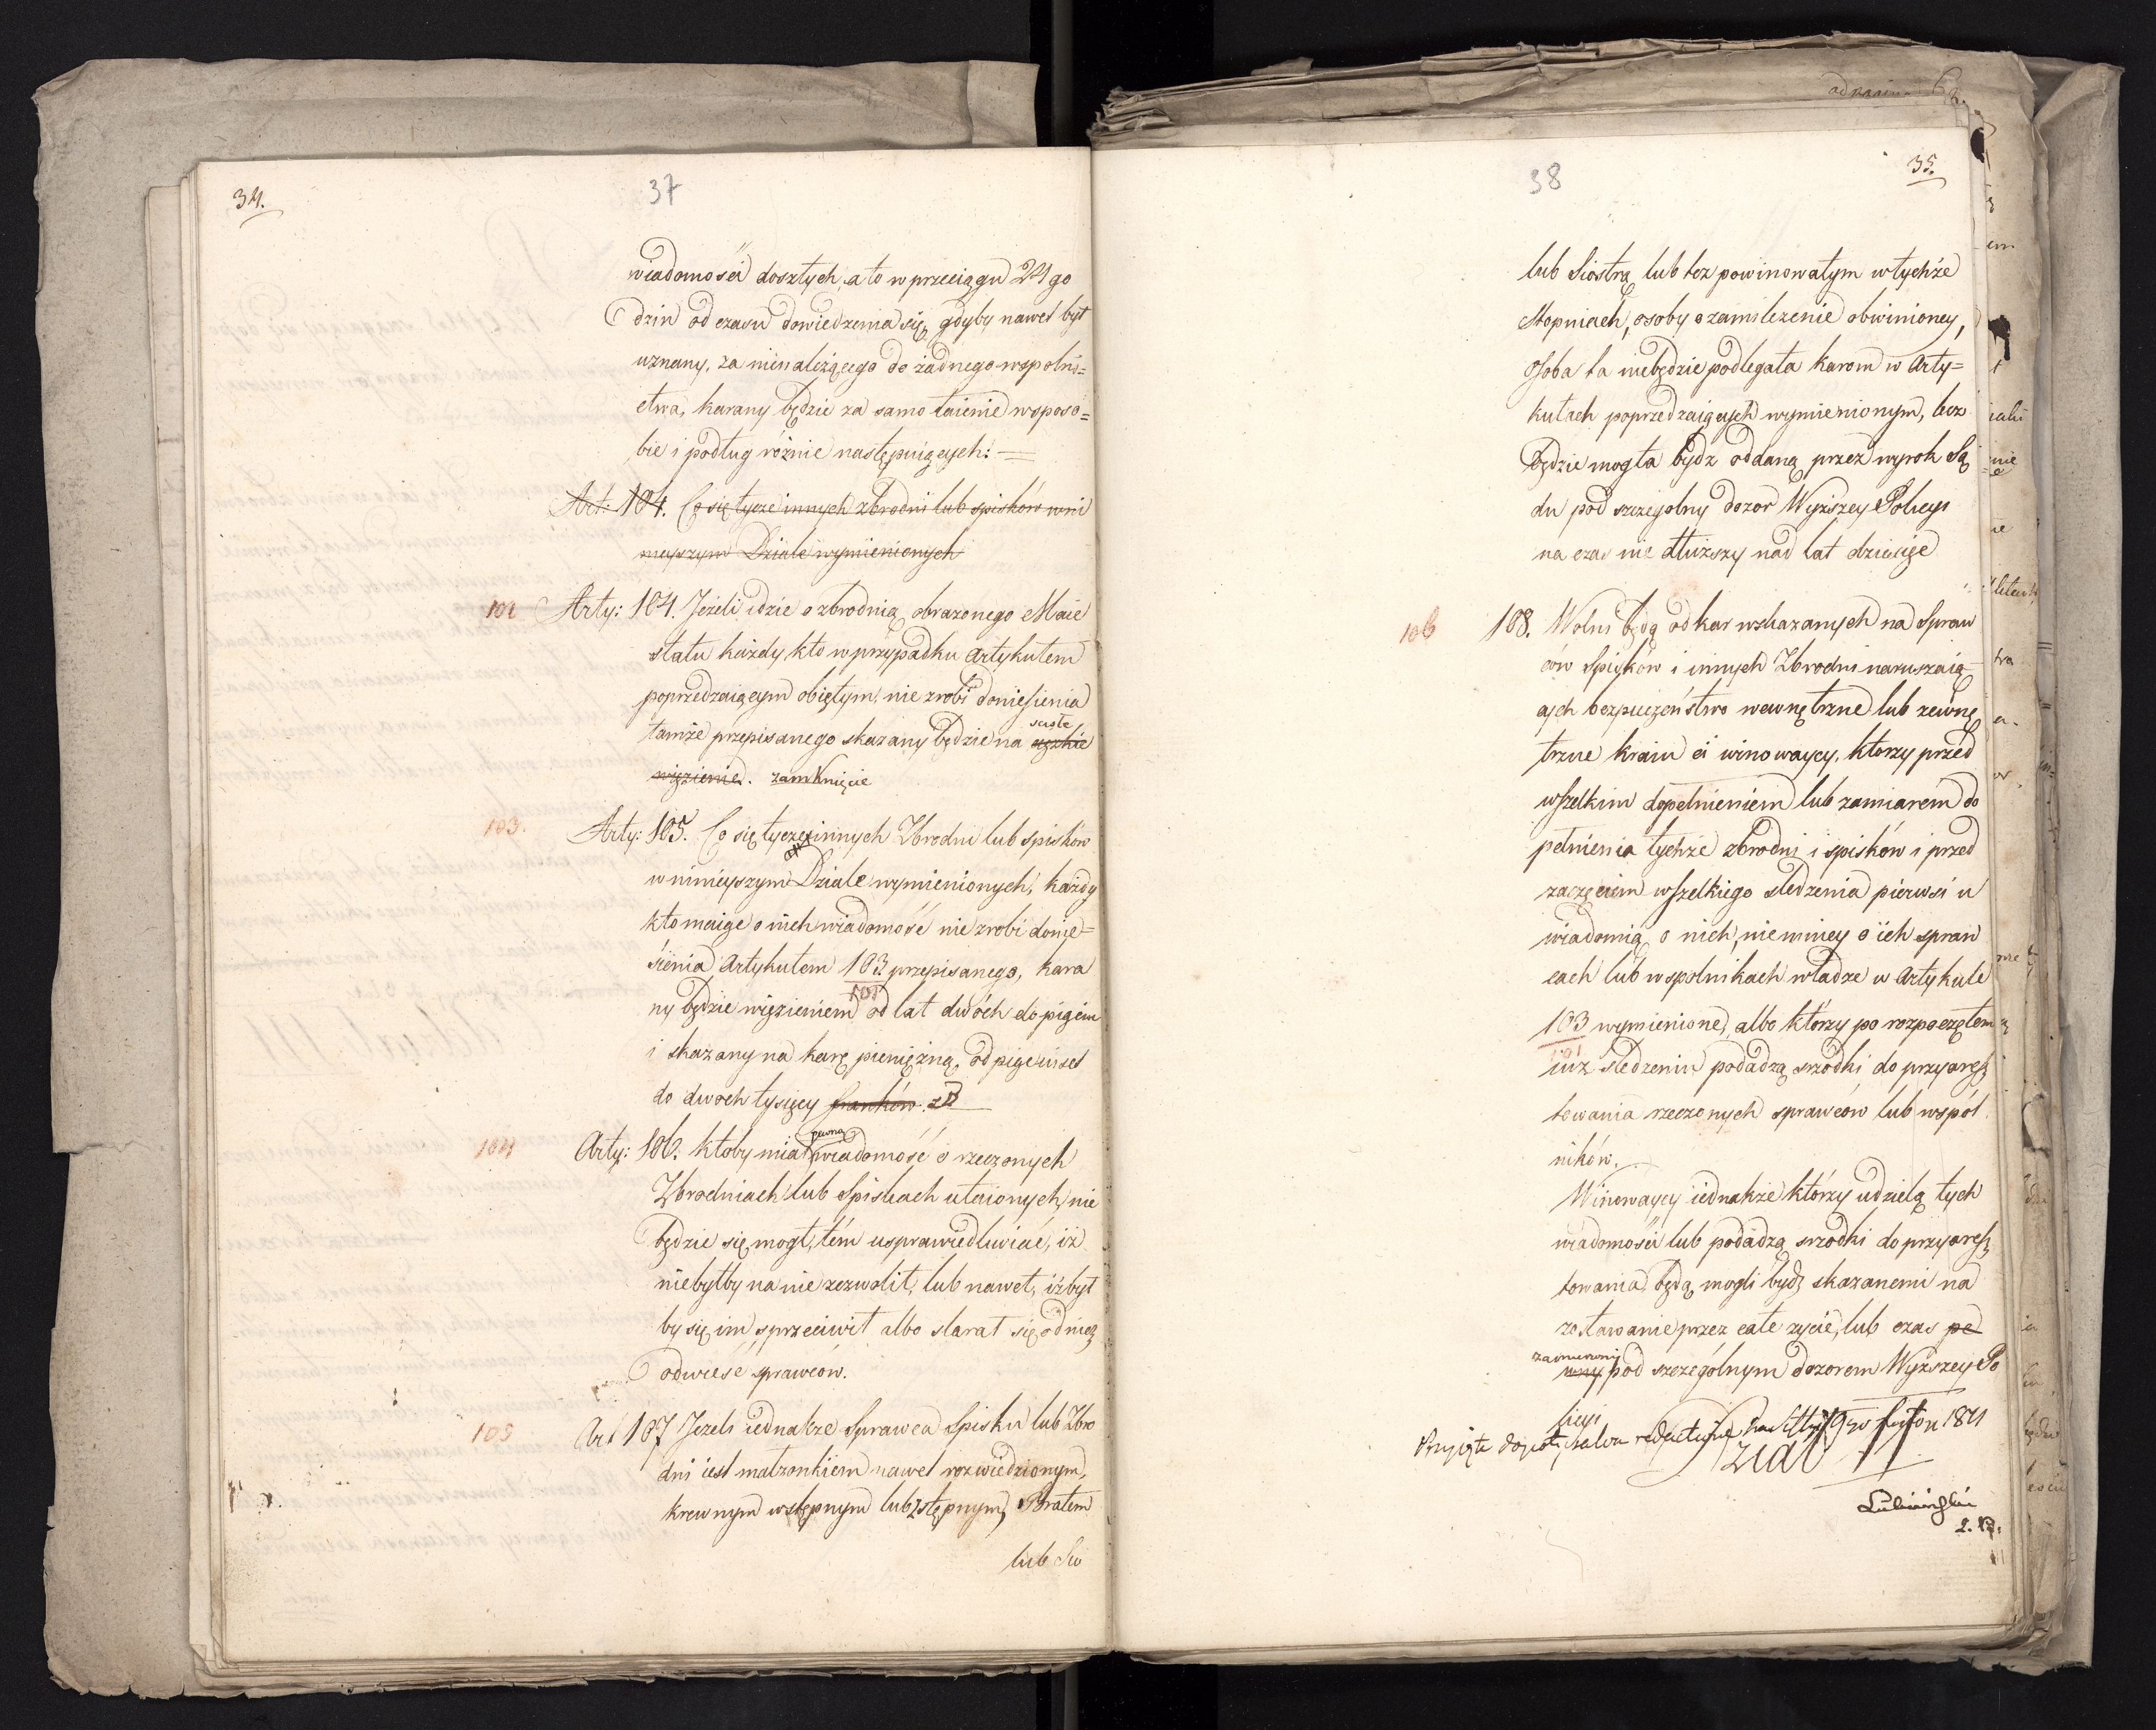 34.
37
wiadomości doszłych, a to w przeciągu 24 go
dzin od czasu dowiedzenia się, gdyby nawet był
uznany, za nienależącego do żadnego wspolni=
ctwa, karany będzie za samo taienie w sposo=
bie i podług różnic następuiących:
Art: 104. Co się tycze innych zbrodni lub spisków w ni
nieyszym Dziale wymienionych
102 Arty: 104. Jeżeli idzie o zbrodnią obrazonego Maie
statu każdy, kto w przypadku Artykułem
poprzedzaiącym obiętym, nie zrobi doniesienia
scisłe
tamże przepisanego skazany będzie na ciężkie
więzienie. zamknięcie
103. Arty: 105. Co się tycze innych Zbrodni lub spisków
w ninieyszym Dziale wymienionych, każdy
kto maiąc o nich wiadomość nie zrobi donie=
sienia Artykułem 103 przepisanego, kara
101
ny będzie więzieniem od lat dwóch do pięciu
i skazany na karę pieniężną, od pięciuset
do dwoch tysięcy franków. zł
pewną
104 Arty: 106. Ktoby miał wiadomość o rzeczonych
Zbrodniach lub Spiskach utaionych, nie
będzie się mogł, tém usprawiedliwiać, iż
niebyłby na nie zezwolił, lub nawet, iż był
by się im sprzeciwił albo starał się od nich
odwieść sprawców.
105 Art 107 Jezeli iednakze Sprawca Spisku lub Zbro
dni iest małzonkiem nawet rozwiedzionym,
krewnym wstępnym lub zstępnym, Bratem
lub Sio
38
35.
lub Siostrą lub tez powinowatym w tychże
Stopniach, osoby o zamilczenie obwinioney,
osoba ta niebędzie podlegała karom w Arty=
kułach poprzedzaiących wymienionym, lecz
będzie mogła bydz oddaną przez wyrok Są
du pod szczegolny dozor Wyższey Policyi
na czas nie dłuższy nad lat dziesięc
106 108. Wolni będą od kar wskazanych na Spraw
ców Spisków i innych Zbrodni naruszaią
cych bezpieczeństwo wewnętrzne lub zewnę
trzne kraiu ci winowaycy, ktorzy przed
wszelkim dopełnieniem lub zamiarem do
pełnienia tychże zbrodni i spisków i przed
zaczęciem wszelkiego sledzenia pierwsi u
wiadomią o nich, niemniey o ich spraw
cach lub wspolnikach władze w Artykule
103 wymienione, albo ktorzy po rozpoczętem
101
iuz sledzeniu podadzą srzodki do przyaresz
towania rzeczonych sprawców lub wspól
ników.
Winowaycy iednakze którzy udzielą tych
wiadomości lub podadzą srzodki do przyaresz
towania, będą mogli bydź skazanemi na
zostawanie przez całe zycie, lub czas pe
zamierzony
wny pod szczególnym dozorem Wyższey Po
licyi
salva 1821